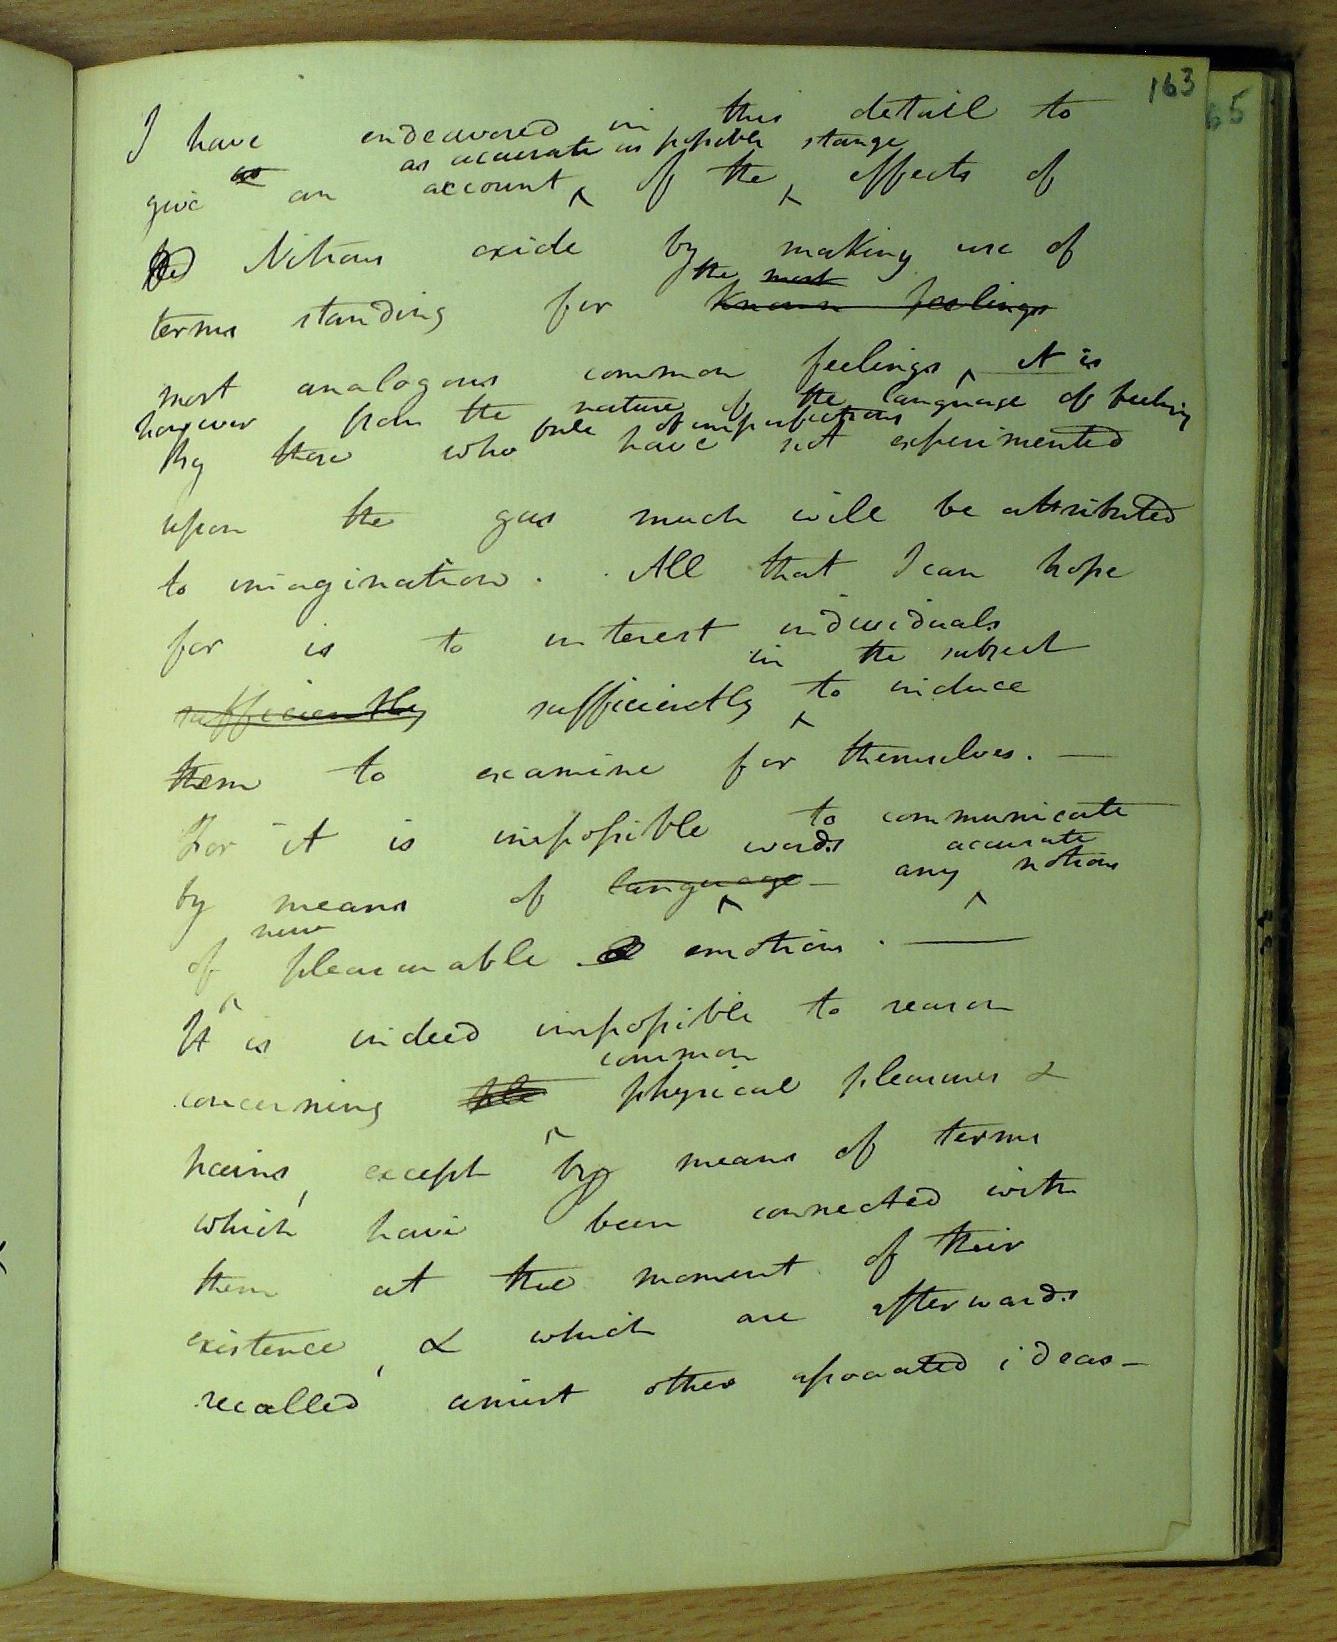 163
65
I have endeavored in this detail to
as accurate as possible stange
give as an account of the effects of
Nitrous oxide by making use of
the most
terms standing for known feelings
most analogous common feelings, it is
however from the nature of the language of feeling
full of imperfections
By those who have not experimented
upon the gas much will be attributed
to imagination. All that I can hope
for is to interest individuals
in the subject
sufficiently sufficiently to induce
them to examine for themselves. —
For it is impossible to communicate
words accurate
by means of language any notions
new
of pleasurable emotions. —
It is indeed impossible to reason
common
concerning ple physical pleasures &
pains, except by means of terms
which have been connected with
them at the moment of their
existence, & which are afterwards
recalled amist other associated ideas —